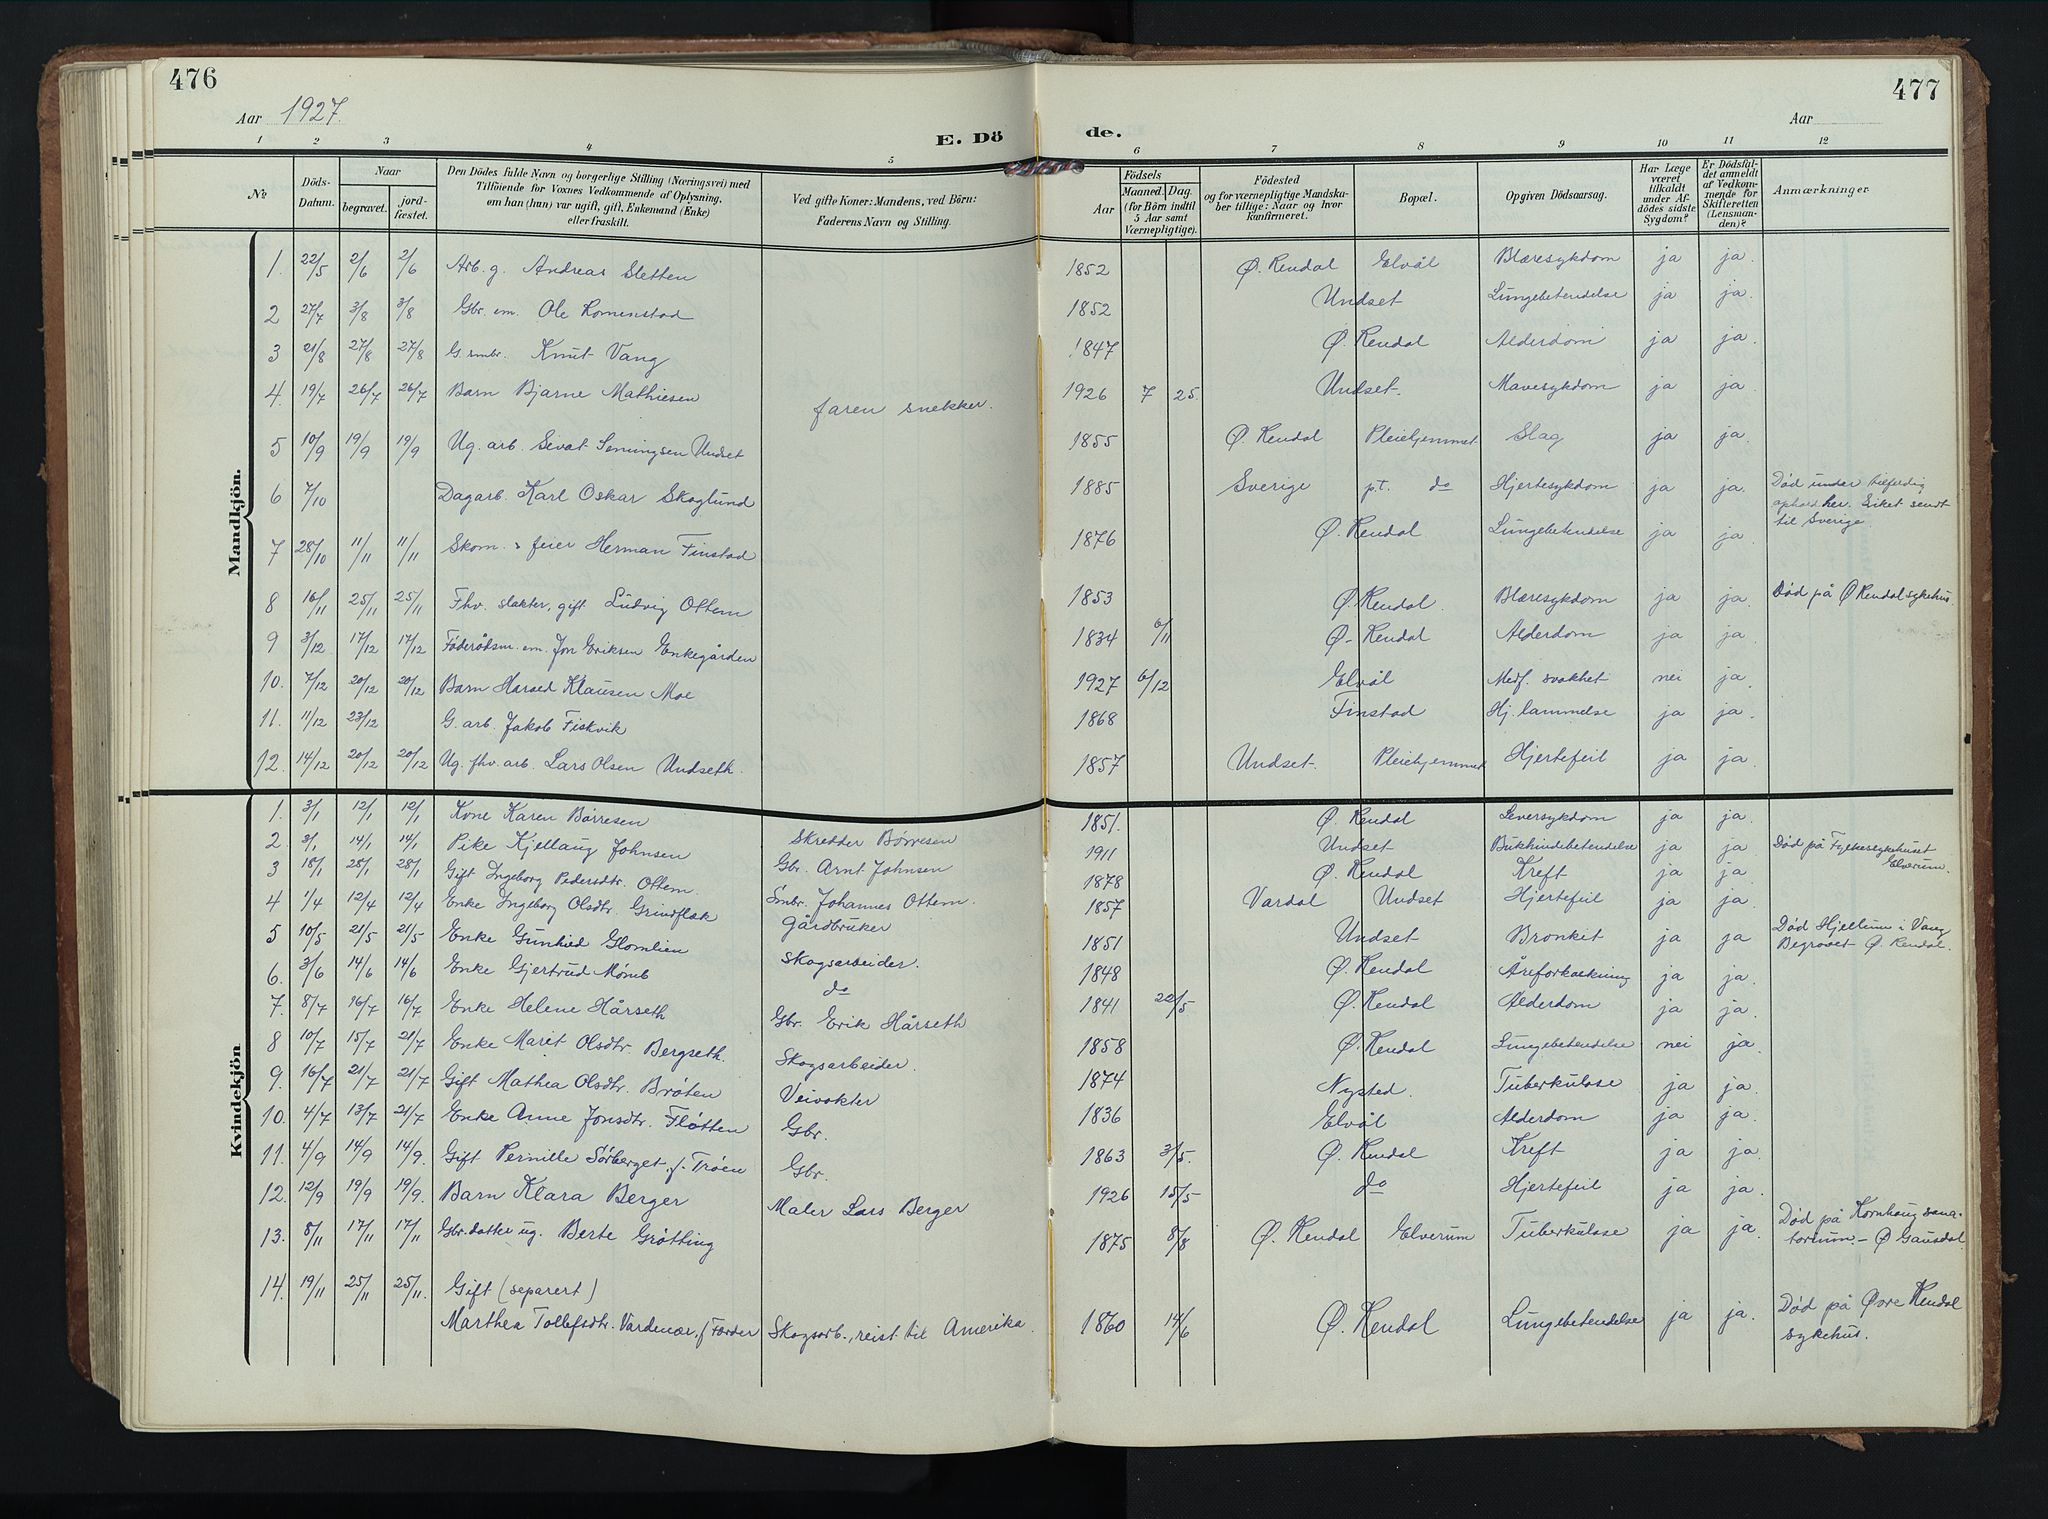 476
477
Aar 1927.
Aar
E. Dö
de.
1 2 3 4 5 6 7 8 9 10 11 12
No
Döds-Datum.
Naar
begravet.
jord-fæstet.
Den Dödes fulde Navn og borgerlige Stilling (Næringsvei) med
Tilföiende for Voxnes Vedkommende af Oplysning,
om han (hun) var ugift, gift, Enkemand (Enke)
eller fraskilt.
Ved gifte Koner: Mandens, ved Börn:
Faderens Navn og Stilling.
Födsels
Aar
Maaned.
Dag.
(for Börn indtil
5 Aar samt
Værnepligtige).
Födested
og for værnepligtige Mandska-
ber tillige: Naar og hvor
konfirmeret.
Bopæl.
Opgiven Dödsaarsag.
Har Læge
været
tilkaldt
under Af-
dödes sidste
Sygdom?
Er Dödsfal-
det anmeldt
af Vedkom-
mende for
Skifteretten
(Lensman-
den)?
Anmærkninger.
Mandkjön.
1. 22/5 2/6 2/6 Arb. g. Andreas Sletten 1852 Ø. Rendal Elvål Blæresykdom ja ja.
2 27/7 3/8 3/8 Gbr. em. Ole Lomenstad 1852 Undset Lungebetendelse ja ja.
3 21/8 27/8 27/8 G. smbr. Knut Vang 1847 Ø. Rendal Alderdom ja ja.
4. 19/7 26/7 26/7 Barn Bjarne Mathiesen faren snekker. 1926 7 25. Undset. Mavesykdom ja ja.
5 10/9 19/9 19/9 Ug. arb. Sevat Undset 1855 Ø. Rendal Pleiehjemmet Slag ja ja.
6 7/10 Dagarb. Karl Oskar Skoglund 1885 Sverige p.t. do Hjertesykdom ja ja. Død under tilfeldig
ophold her. Liket sendt
til Sverige.
7 28/10 11/11 11/11 Skom. & feier Herman Finstad 1876 Ø. Rendal Lungebetendelse ja ja.
8 16/11 25/11 25/11 Fhv. slakter, gift Ludvig Ottem 1853 Ø. Rendal. Blæresykdom ja ja Død på Ø Rendal sykehus.
9 3/12 17/12 17/12 Føderådsm. em. Jon Eriksen Enkegården 1834 6/11 Ø. Rendal Alderdom ja ja.
10. 7/12 20/12 20/12 Barn Klausen Moe 1927 6/12 Elvål Medf. svakhet nei ja.
11. 11/12 23/12 G. arb. Jakob Fiskvik 1868 Finstad Hj. lammelse ja ja.
12. 14/12 20/12 20/12 Ug. fhv. arb. Lars Olsen Undseth. 1857 Undset. Pleiehjemmet Hjertefeil ja ja.
Kvindekjön
1. 3/1 12/1 12/1 Kone Karen Børresen Skredder Børresen 1851. Ø. Rendal Leversykdom ja ja
2. 3/1 14/1 14/1 Pike Kjellaug Johnsen Gbr. Arnt Johnsen 1911 Undset Bukhindebetendelse ja ja Død på Fylkessykehuset
Elverum.
3 18/1 28/1 28/1 Gift Ingeborg Pedersdtr. Ottem. Smbr. Johannes Ottem. 1878 Ø. Rendal Kreft ja ja.
4 1/4 12/4 12/4 Enke Ingeborg Olsdtr. Grindflæk Gårdbruker 1857 Vardal Undset Hjertefeil ja ja.
5 10/5 21/5 21/5 Enke Gunhild Glomlien Skogsarbeider. 1851 Undset Bronkit ja ja Død Hjellum i Vang
Begravet Ø. Rendal.
6. 3/6 14/6 14/6 Enke Gjertrud Mømb do 1848 Ø. Rendal Åreforkalkning ja ja.
7. 8/7 16/7 16/7 Enke Helene Hårseth Gbr. Erik Hårseth 1841 22/5 Ø. Rendal Alderdom ja ja.
8 10/7 15/7 21/7 Enke Marit Olsdtr. Bergseth. Skogsarbeider. 1858 Ø. Rendal Lungebetendelse nei ja.
9. 16/7 21/7 21/7 Gift Mathea Olsdtr. Brøten Veivokter 1874 Nysted. Tuberkulose ja ja
10. 4/7 13/7 21/7 Enke Anne Jonsdtr. Fløtten Gbr. 1836 Elvål Alderdom ja ja.
11. 4/9 14/9 14/9. Gift Pernille Sørberget f. Trøen Gbr. 1863 3/5. Ø. Rendal Kreft ja ja.
12. 12/9 19/9 19/9. Barn Klara Berger Maler Lars Berger 1926 15/5 do Hjertefeil ja ja.
13. 8/11 17/11 17/11 Gbr.datter ug. Berte Grøtting 1875 8/8 Ø. Rendal Elverum Tuberkulose ja ja. Død på Kornhaug sana-
torium. - Ø Gausdal.
14. 19/11 25/11 25/11. Gift (separert)
Marthea Tollefsdtr. Vardenær, f Førder Skogsarb., reist til Amerika. 1860 14/6 Ø. Rendal Lungebetendelse ja ja. Død på Øvre Rendal
sykehus.